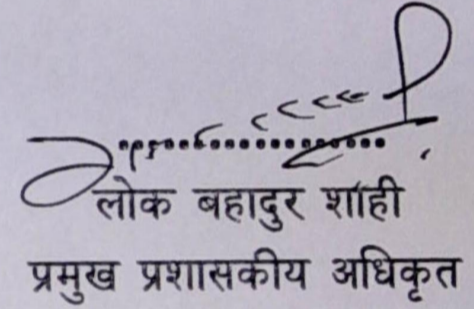 लोक बहादुर शाही
प्रमुख प्रशासकीय अधिकृत